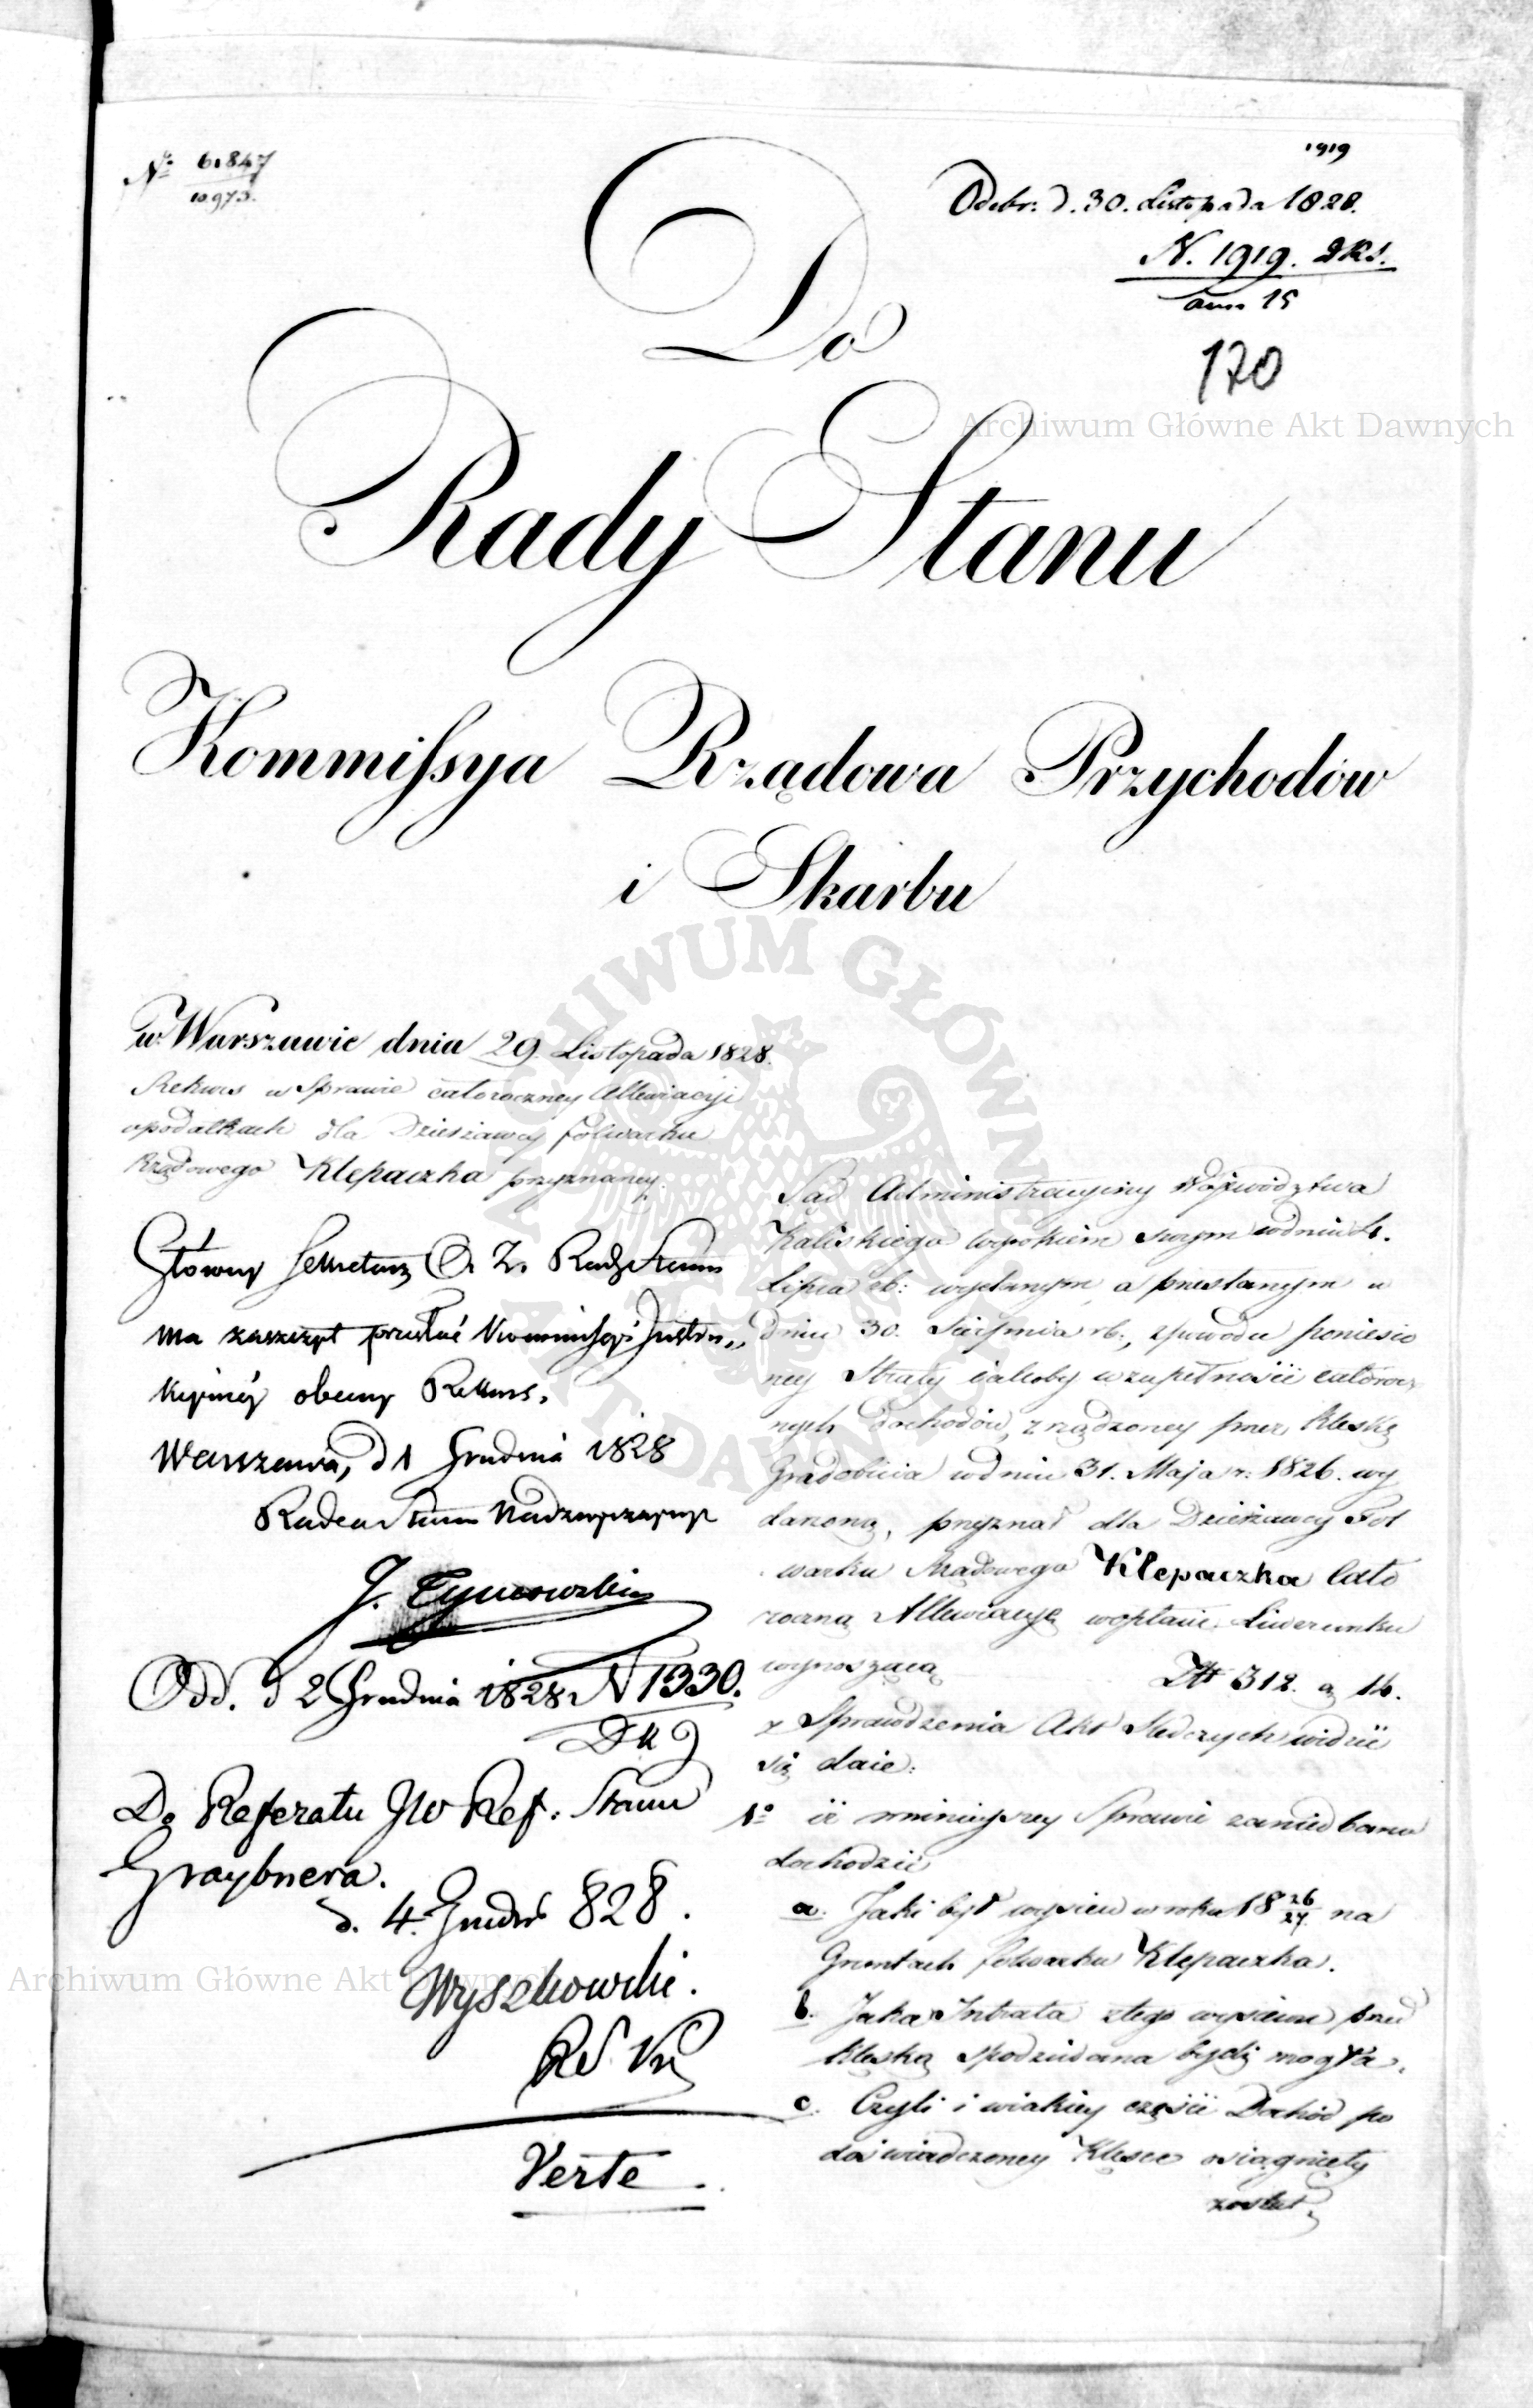 1919
No 61847
10973.
Odebr: d. 30. Listopada 1828.
N. 1919. DKS.
ann 15
170
Do
Rady Stanu
Kommissya Rządowa Przychodów
i Skarbu
w Warszawie dnia 29. Listopada 1828.
Rekurs w Sprawie całoroczney Allewiacyi
w podatkach dla Dzierzawcy folwarku
Rządowego Klepaczka przyznaney.
Główny Sekretarz Rady Stanu
ma zaszczyt przesłać Kommissyi Instru„
kcyinéj obecny Rekurs.
Warszawa, d 1 Grudnia 1828
Radca Stanu Nadzwyczajny
J. Tymowski
Odd. d 2 Grudnia 1828 N 1330.
Do Referatu JW Ref: Stanu
Graybnera.
d. 4. Grudn 828.
Wyszkowski.
Verte
Sąd Administracyiny Województwa
Kaliskiego wyrokiem swym w dniu 4.
Lipca rb: wydanym, a przesłanym w
dniu 30. Sierpnia rb:, z powodu poniesio
ney Straty całkowitej w zupełności całorocz
nych dochodów, zrządzoney przez Klęskę
Gradobicia w dniu 31. Maja r: 1826. wy
darzoną, przyznał dla Dzierżawcy Fol
warku Rządowego Klepaczka Cało
roczną Allewiacyę w opłacie Liwerunku
wynoszącą Złt 312. g 14.
z Sprawdzenia Akt Sledczych widzieć
się daie:
1o iż w ninieyszey Sprawie zaniedbano
dochodzić
a. Jaki był wysiew w roku 18 26/27 na
Gruntach folwarku Klepaczka.
b. Jaka Intrata z tego wysiewu przed
Klęską spodziewana bydź mogła,
c. Czyli i w iakiey części Dochód po
doświadczoney Klęsce osiągnięty
został,
Archiwum Główne Akt Dawnych
Archiwum Główne Akt Dawnych
ARCHIWUM GŁÓWNE AKT DAWNYCH